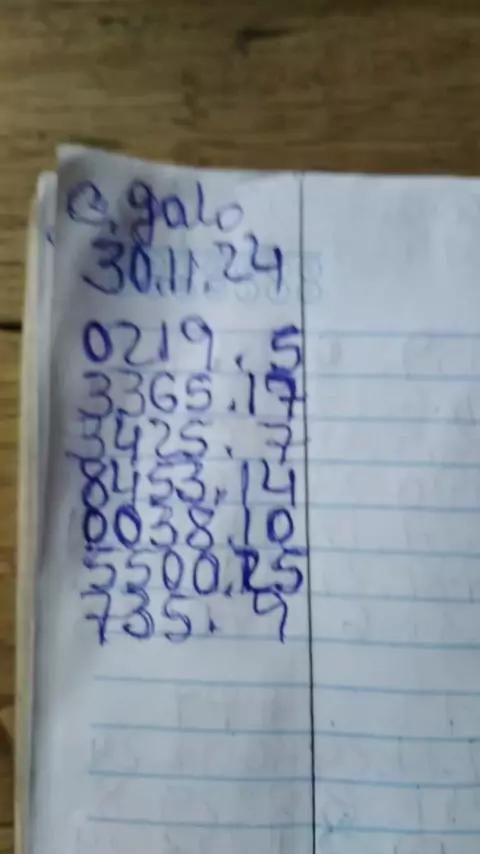 C. galo
30.11.24
0219.5
3365.17
3425.7
8453.14
0038.10
5500.25
735.9